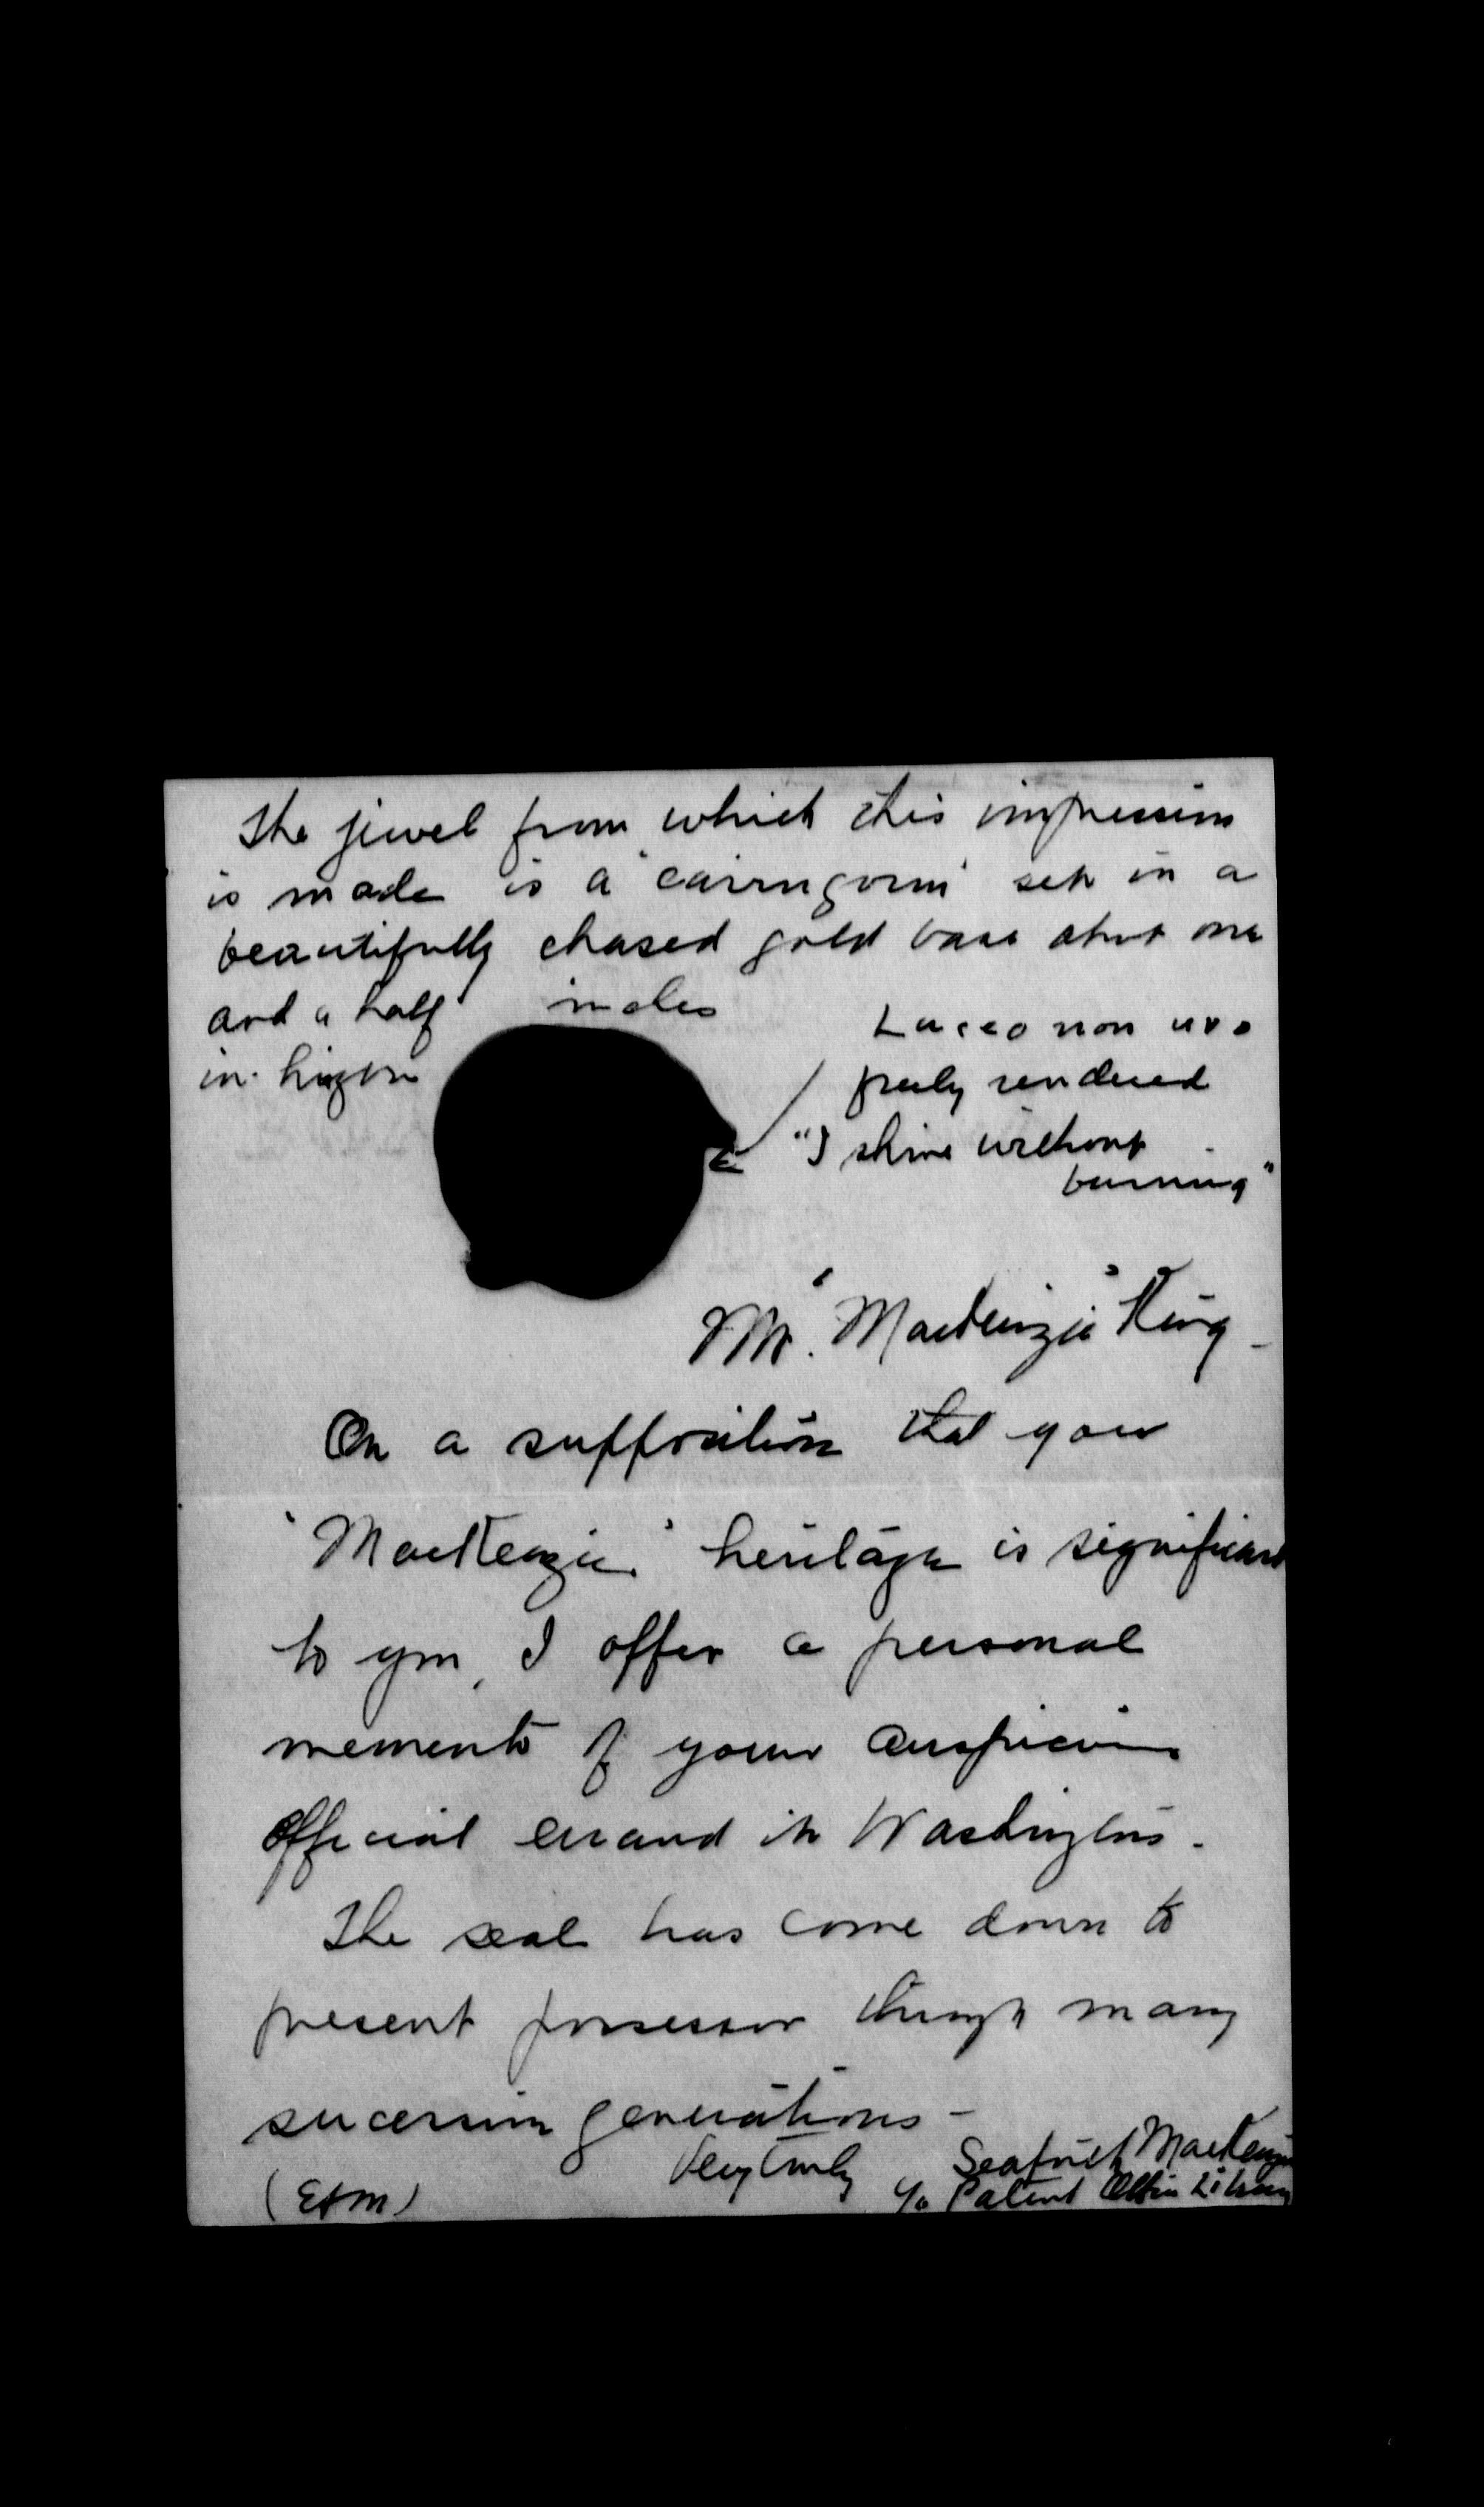 The jewel from which this impression
is made is a "cairngorm" set in a
beautifully chased gold base about one
and a half inches
in
Luceo non uro
freely rendered
"I shine without
burning"
Mr. "MacKenzie" King -
On a supposition that your
'MacKenzie' heritage is significant
to you, I offer a personal
memento of your auspicious
official errand in Washington.
The seal has come down to
present possessor through many
succession generations -
Very truly
Seaforth MacKenzie
c/o Patent Office Library
(EHM)